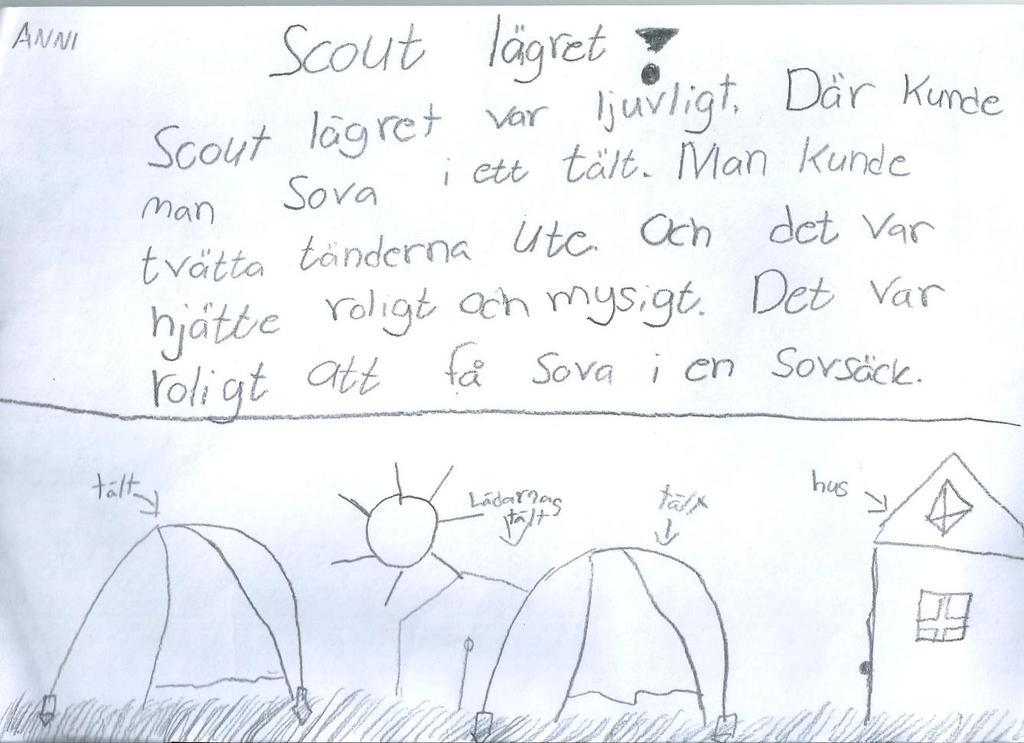 ANNI
Scout lägret !
Scout lägret var ljuvligt. Där kunde
man sova i ett tält. Man kunde
tvätta tänderna ute. Och det var
hjätte roligt och mysigt. Det var
roligt att få sova i en sovsäck.
tält
Lädarnas
tält
tält
hus